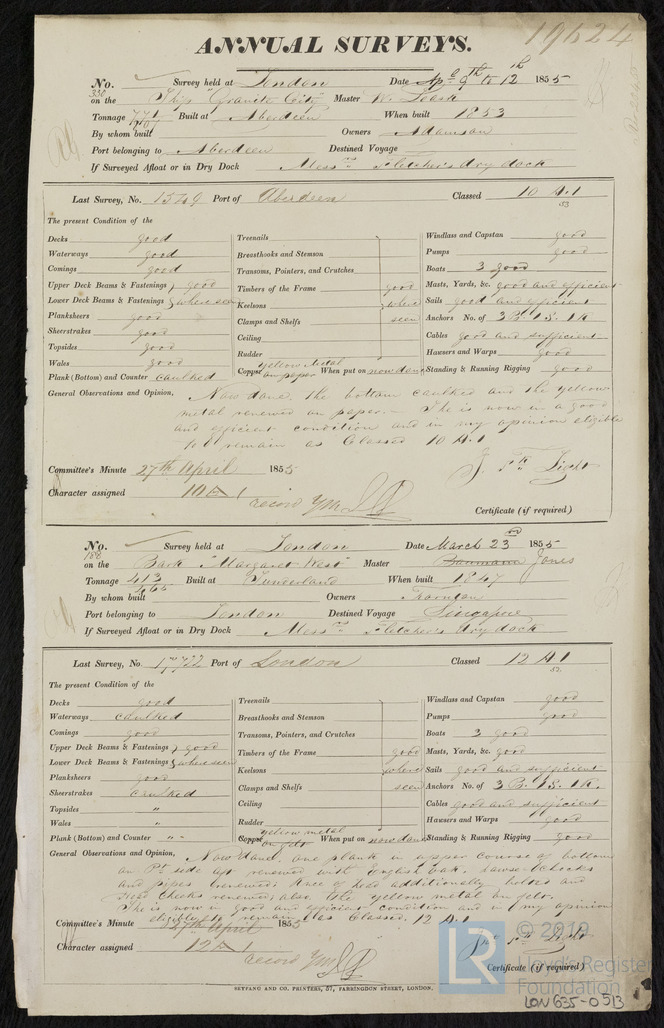 19624
ANNUAL SURVEYS.
No. 330 Survey held at London Date Apl 9th to 12th 1855
on the Ship "Granite City" Master W. Leask
Tonnage 771 Built at Aberdeen When built 1853
By whom built Owners Adamson
Port belonging to Aberdeen Destined Voyage
If Surveyed Afloat or in Dry Dock Messrs Fletcher's dry dock
Last Survey, No. 1549 Port of Aberdeen Classed 10 A.1
53
The present Condition of the
Decks good
Waterways good
Comings good
Upper Deck Beams & Fastenings } good
Lower Deck Beams & Fastenings } where seen
Planksheers good
Sheerstrakes good
Topsides good
Wales good
Plank (Bottom) and Counter caulked
Treenails
Breasthooks and Stemson
Transoms, Pointers, and Crutches
Timbers of the Frame good
Keelsons where
Clamps and Shelfs seen
Ceiling
Rudder
Copper yellow metal on paper When put on now done
Windlass and Capstan good
Pumps good
Boats 3 good
Masts, Yards, &c. good and efficient
Sails good and efficient
Anchors No. of 3 B. 1 S. 1 K
Cables good and sufficient
Hawsers and Warps good
Standing & Running Rigging good
General Observations and Opinion, Now done, the bottom caulked and the yellow
metal renewed on paper. – She is now in a good
and efficient condition and in my opinion eligible
to remain as Classed 10 A.1
Committee's Minute 27th April 1855
Character assigned 10 A 1
Certificate (if required)
No. 188 Survey held at London Date March 23rd 1855
on the Bark "Margaret West" Master Bowmann Jones
Tonnage 413 Built at Sunderland When built 1847
465
By whom built Owners Thornton
Port belonging to London Destined Voyage Singapore
If Surveyed Afloat or in Dry Dock Messrs Fletcher's dry dock
Last Survey, No. 17722 Port of London Classed 12 A.1
52
The present Condition of the
Decks good
Waterways caulked
Comings good
Upper Deck Beams & Fastenings } good
Lower Deck Beams & Fastenings } where seen
Planksheers good
Sheerstrakes caulked
Topsides "
Wales "
Plank (Bottom) and Counter " "
Treenails
Breasthooks and Stemson
Transoms, Pointers, and Crutches
Timbers of the Frame good
Keelsons where
Clamps and Shelfs seen
Ceiling
Rudder
Copper yellow metal on felt When put on now done
Windlass and Capstan good
Pumps good
Boats 3 good
Masts, Yards, &c. good
Sails good and sufficient
Anchors No. of 3 B. 1 S. 1 K.
Cables good and sufficient
Hawsers and Warps good
Standing & Running Rigging good
General Observations and Opinion, Now done, one plank in upper course of bottom
on Pt side aft renewed with English Oak, hawse-chocks
and pipes renewed, knee of head additionally bolted and
cheeks renewed, also the yellow metal on felt.
She is now in good and efficient condition and in my opinion
eligible to remain as Classed. 12 A.1
Committee's Minute 27th April 1855
Character assigned 12 A 1
Certificate (if required)
SEYFANG AND CO. PRINTERS, 57, FARRINGDON STREET, LONDON.
LR
© 2019
Lloyd's Register
Foundation
LON635-0513